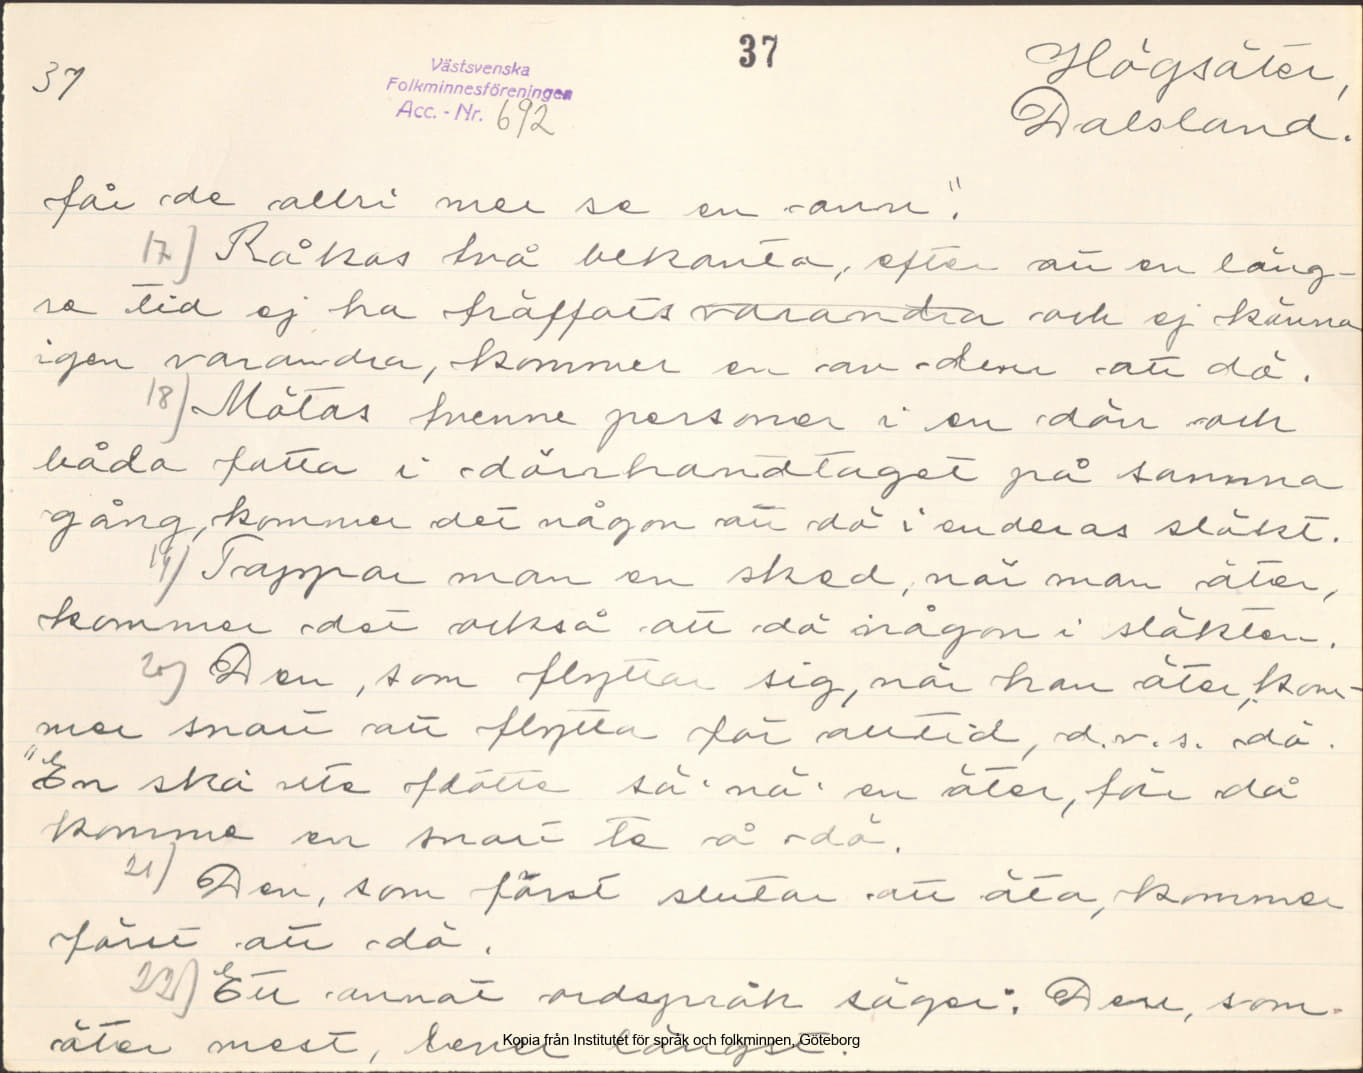 37
37
Västsvenska
Folkminnesföreningen
Acc. - Nr. 692
Högsäter,
Dalsland.
får de allri mer se en ann".
17) Råkas två bekanta, efter att en läng-
re tid ej ha träffats varandra och ej känna
igen varandra, kommer en av dem att dö.
18) Mötas tvenne personer i en dörr och
båda fatta i dörrhandtaget på samma
gång, kommer det någon att dö i enderas släkt.
19) Tappar man en sked, när man äter,
kommer det också att dö någon i släkten.
20) Den, som flyttar sig, när han äter, kom-
mer snart att flytta för alltid, d.v.s. dö.
"En ska' nte flötte sä' nä' en äter, för då
komme en snart te å dö.
21) Den, som först slutar att äta, kommer
först att dö.
22) Ett annat ordspråk säger: Den, som
äter mest, lever längst.
Kopia från Institutet för språk och folkminnen, Göteborg